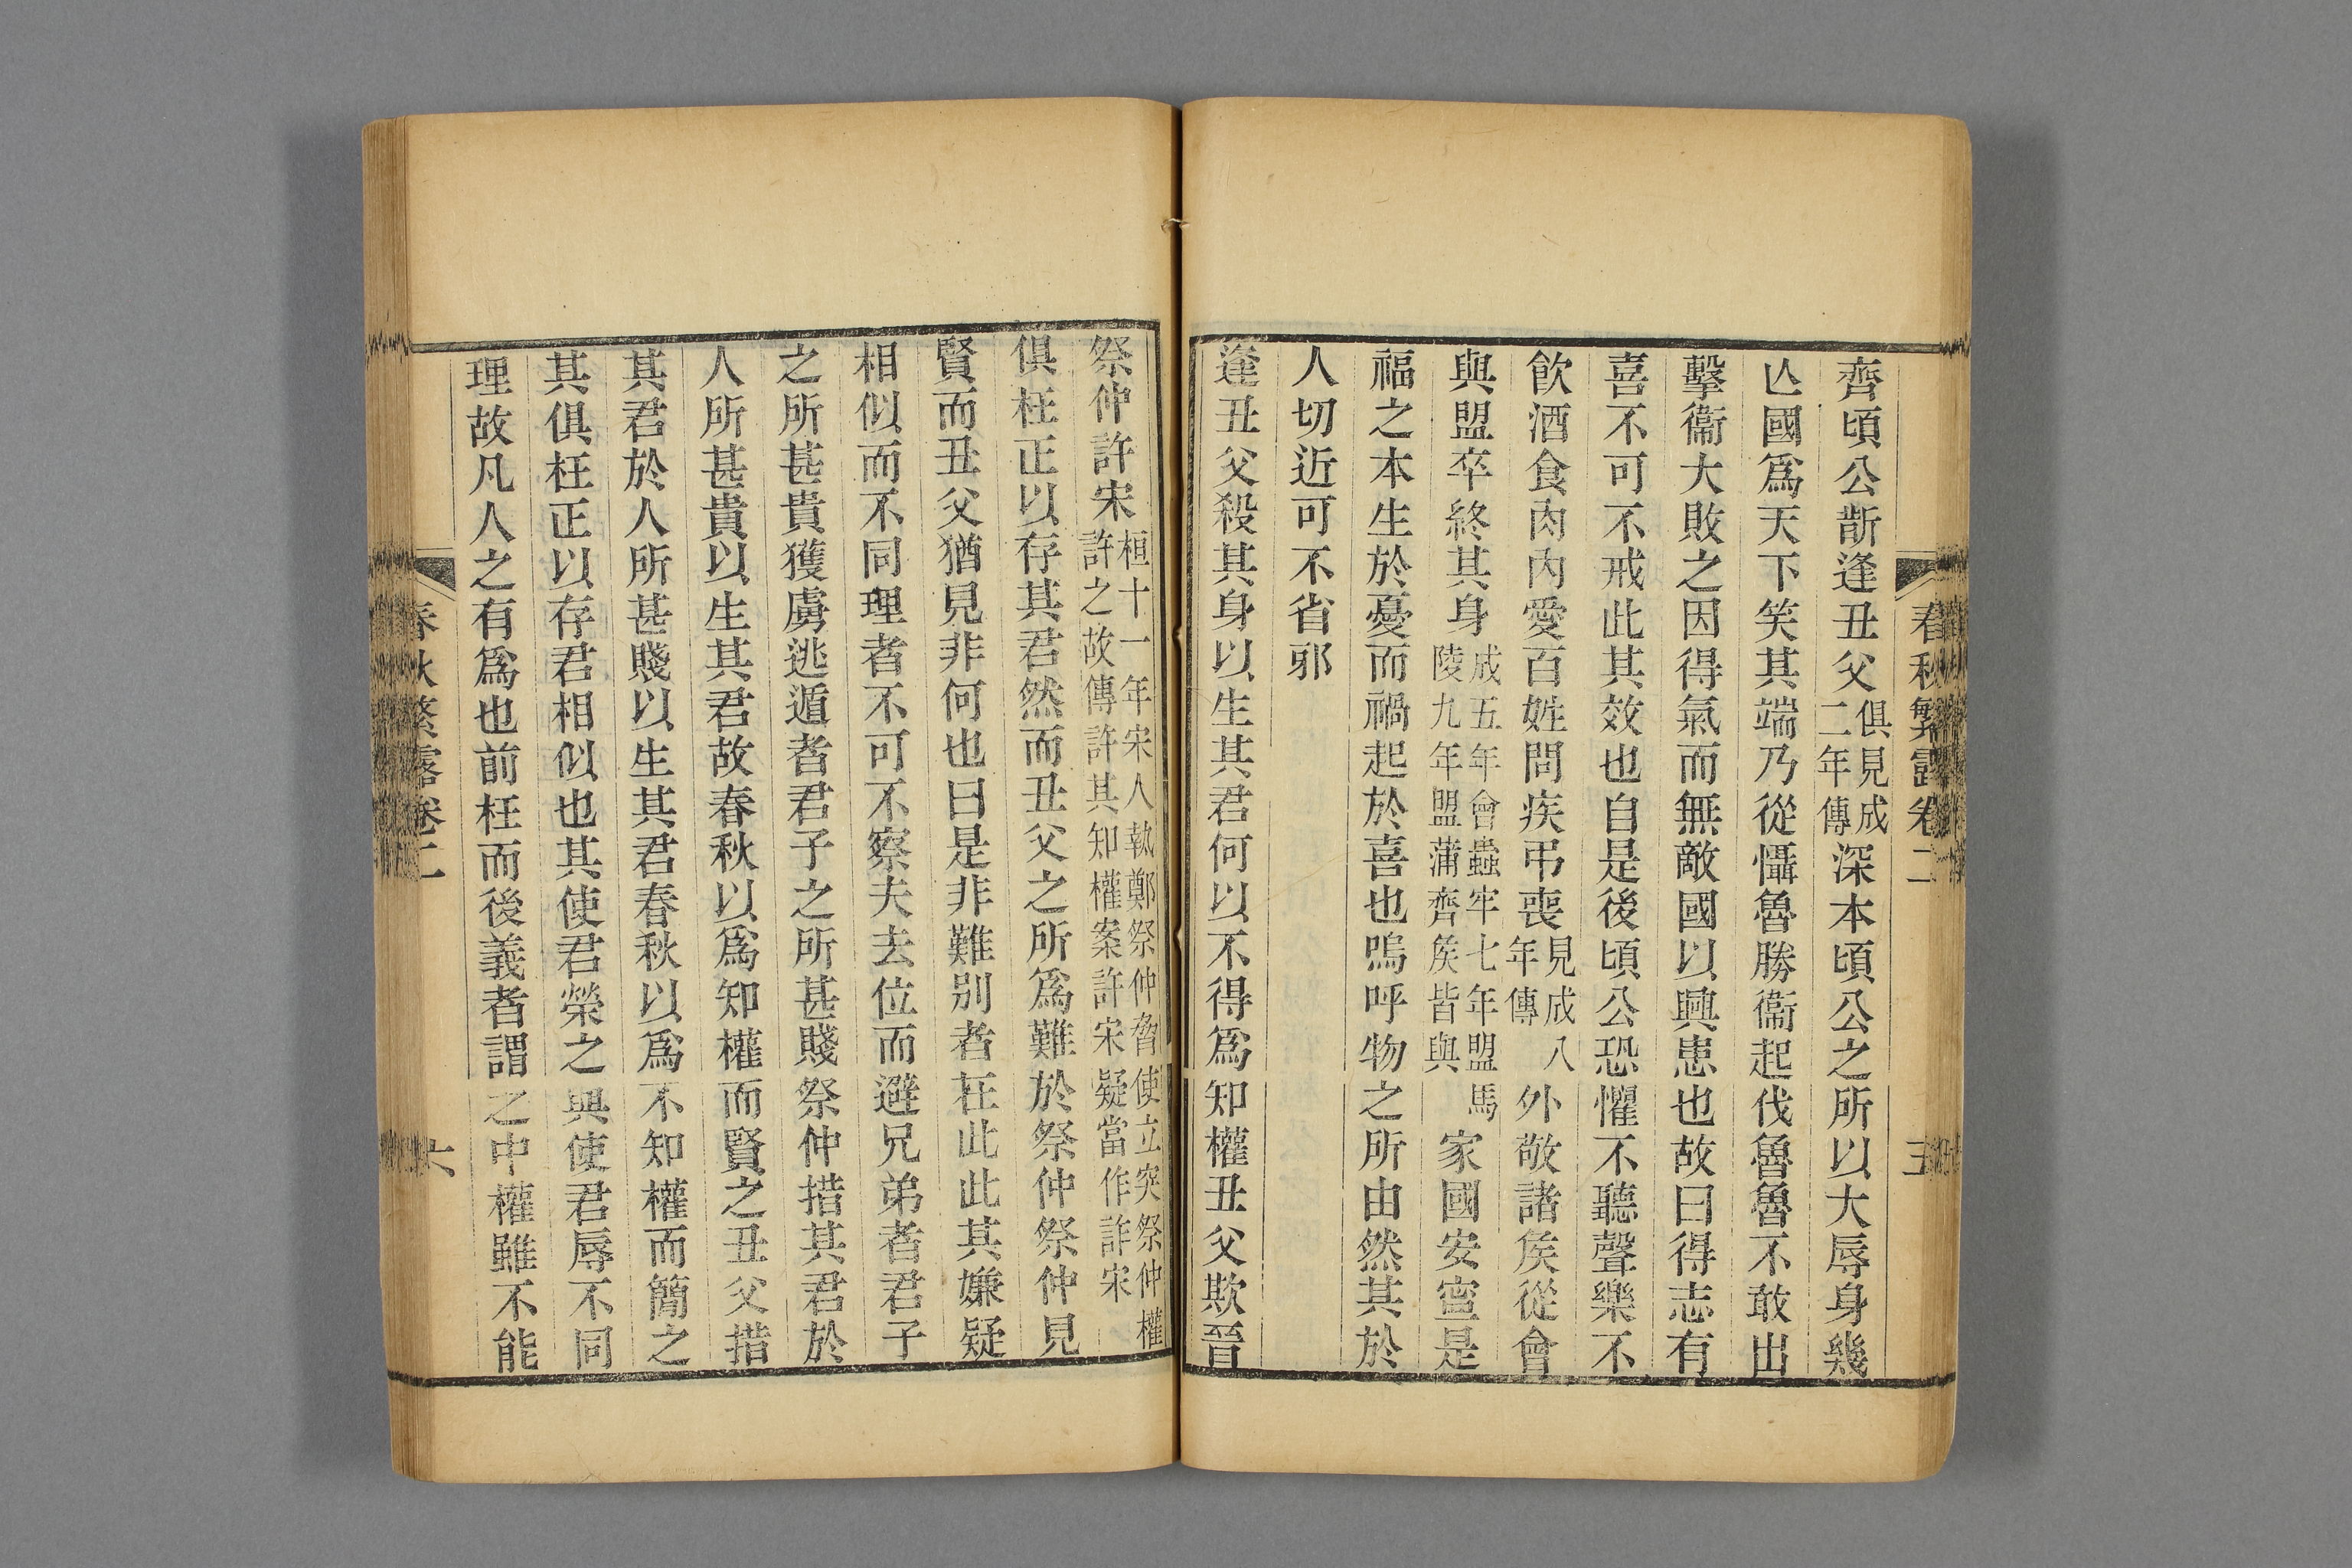 春秋繁露卷二
五
齊頃公斮逢丑父俱見成二年傳深本頃公之所以大辱身幾
亾國爲天下笑其端乃從懾魯勝衞起伐魯魯不敢出
擊衞大敗之因得氣而無敵國以興患也故曰得志有
喜不可不戒此其效也自是後頃公恐懼不聽聲樂不
飮酒食肉內愛百姓問疾弔喪見成八年傳外敬諸矦從會
與盟卒終其身成五年會蟲牢七年盟馬陵九年盟蒲齊矦皆與家國安寍是
福之本生於憂而禍起於喜也嗚呼物之所由然其於
人切近可不省邪
逢丑父殺其身以生其君何以不得爲知權丑父欺晉
祭仲許宋桓十一年宋人執鄭祭仲脅使立突祭仲權許之故傳許其知權案許宋疑當作詐宋
俱枉正以存其君然而丑父之所爲難於祭仲祭仲見
賢而丑父猶見非何也曰是非難別者在此此其嫌疑
相似而不同理者不可不察夫去位而避兄弟者君子
之所甚貴獲虜逃遁者君子之所甚賤祭仲措其君於
人所甚貴以生其君故春秋以爲知權而賢之丑父措
其君於人所甚賤以生其君春秋以爲不知權而簡之
其俱枉正以存君相似也其使君榮之與使君辱不同
理故凡人之有爲也前枉而後義者謂之中權雖不能
春秋繁露卷二
六